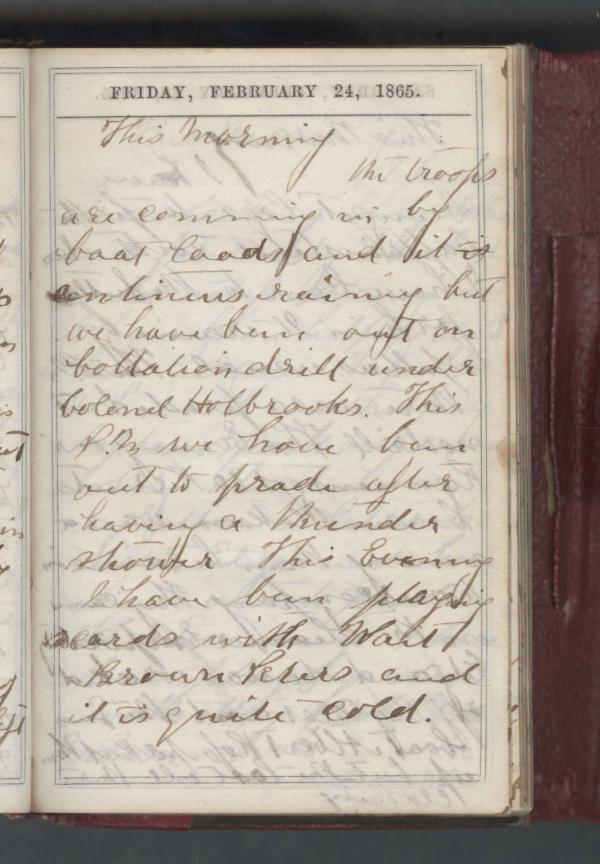 FRIDAY, FEBRUARY 24, 1865.
This Morning
the troops
are comming in by
boat loads and it is
continues raining but
we have been out on
battalion drill under
Colonel Holbrooks. This
P.M we have been
out to prade after
having a thunder
shower This Evening
I have been playing
cards with Wait
Brown Peters and
it is quite cold.